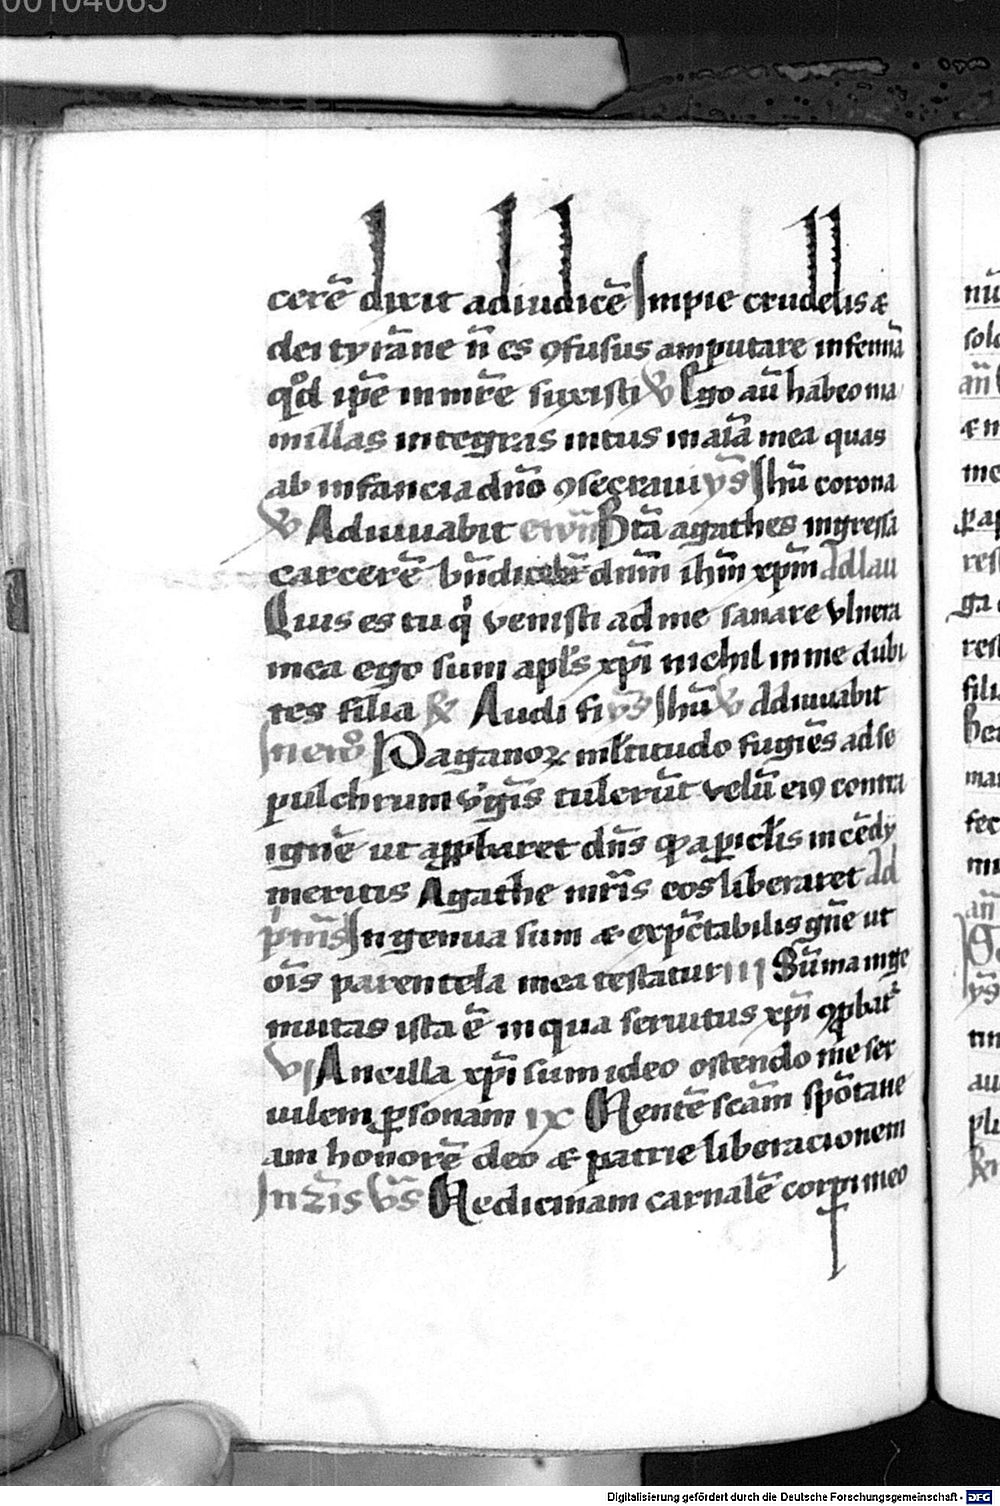 00104065
cerē dixit ad iudicē Impie crudelis ⁊
dei tyrāne n̄ es ꝯfusus amputare in femīa
qͦd ip̄e in mr̄e suxisti ℣ Ego aū habeo ma
millas integras intus in aīa mea quas
ab infancia dn̄o ꝯsecraui ys̄ Ihū corona
℣ Adiuuabit ewn̄ Btā agathes ingressa
carcerē bn̄dicebat dnm̄ ihm̄ xpm̄ Ad lau
Quis es tu qͥ venisti ad me sanare vlnera
mea ego sum apl̄s xpī nichil in me dubi
tes filia ℟ Audi fi ys̄ Ihū ℣ Adiuuabit
In ewͦ Paganoꝝ ml̄titudo fugiēs ad se
pulchrum vͥgīs tulerūt velū eiꝰ contra
ignē ut ꝓbaret dn̄s ꝙ a ꝑiclīs incēdy
meritis Agathe mr̄is eos liberaret Ad
pm̄s Ingenua sum ⁊ expc̄tabilis gn̄e ut
oīs parentela mea testatur III Sūma inge
nuitas ista ē in qua seruitus xpī ꝯꝓbat᷑
VI Ancilla xpī sum ideo ostendo me ser
uilem ꝑsonam IX Mentē scām spōtane
am honorē deo ⁊ patrie liberacionem
In ījs Vs̄ Medicinam carnalē corpi meo
Digitalisierung gefördert durch die Deutsche Forschungsgemeinschaft - DFG